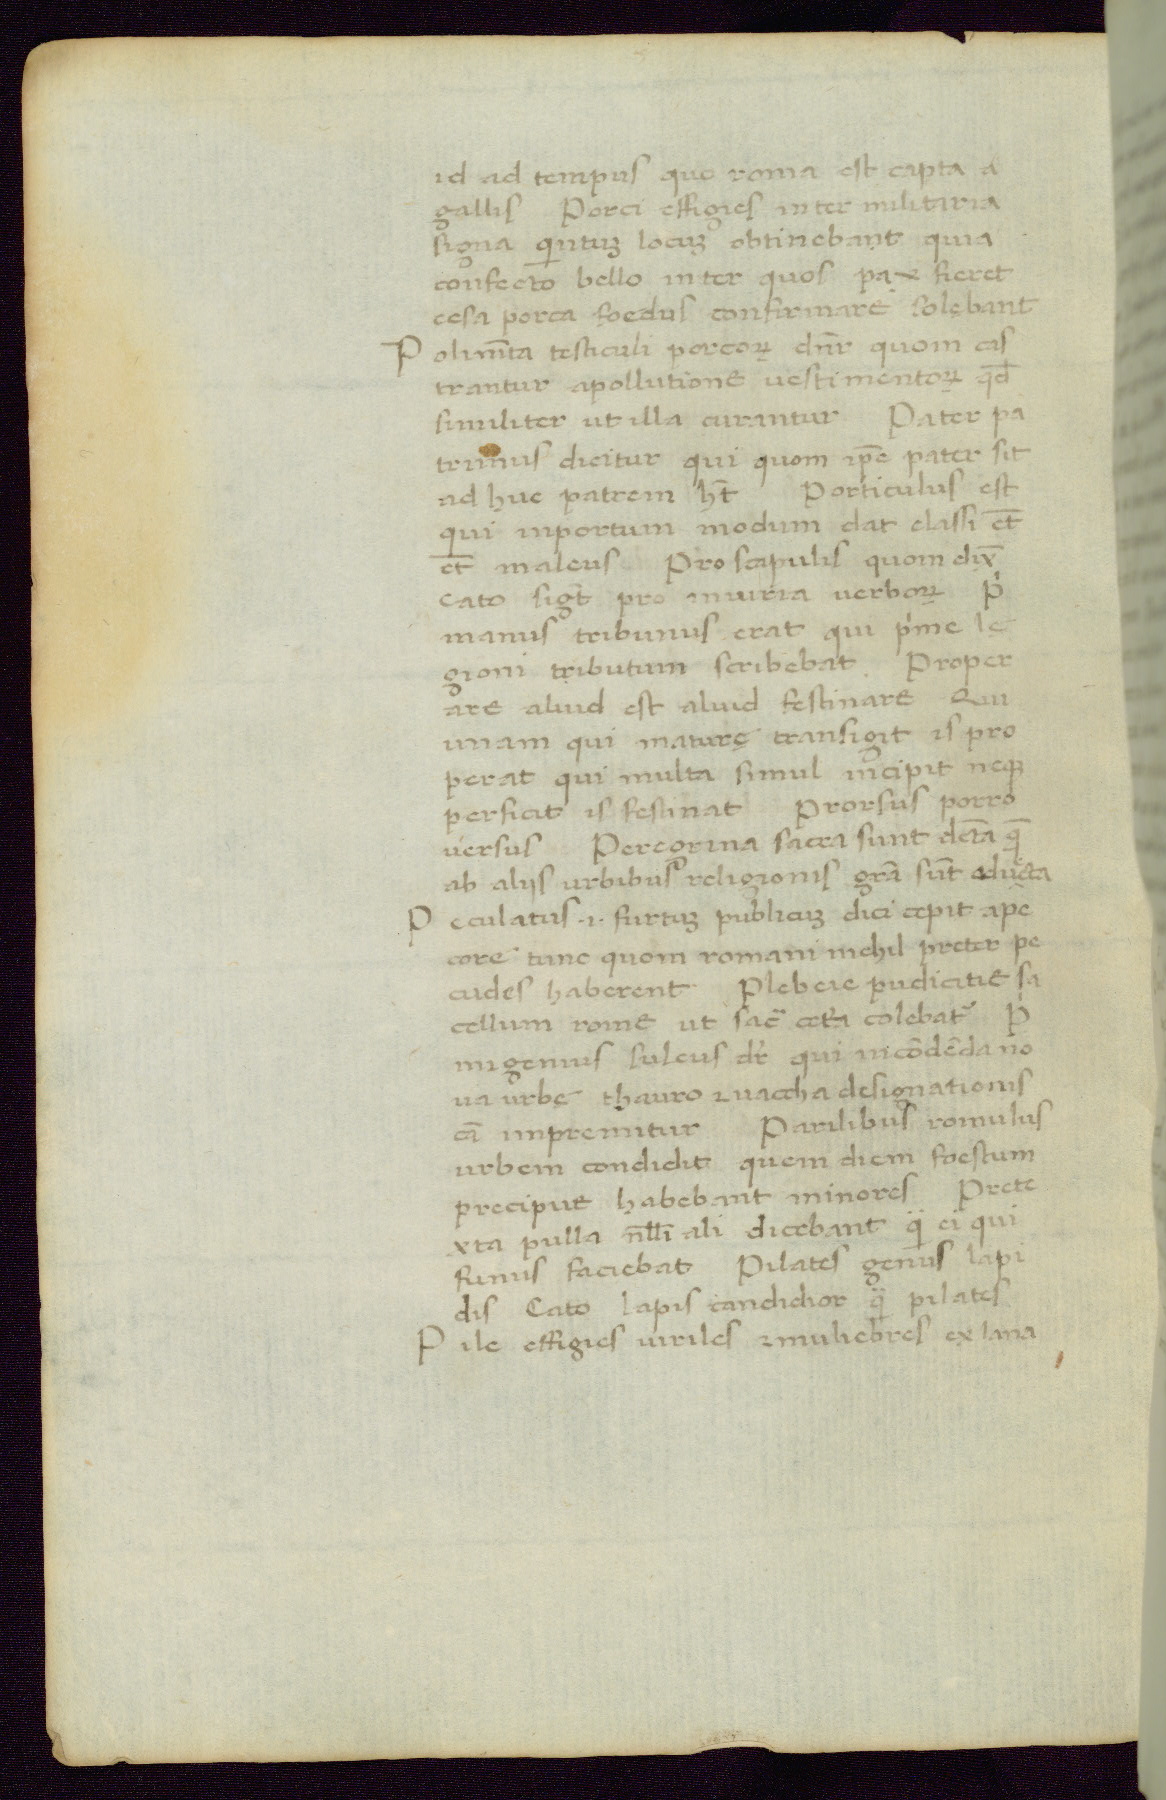 id ad tempus quo roma est capta a
gallis Porci effigies inter militaria
signa quĩtuʒ locuʒ obtinebant quia
confecto bello inter quos pax fieret
cesa porca foedus confirmare solebant
Polimĩta testiculi porcoꝝ dñr quom cas
trantur apollutione uestimentoꝝ qđ
similiter ut illa curantur Pater pa
trimus dicitur qui quom ip̃e pater sit
ad huc patrem ht̃ Porticulus est
qui inportum modum dat classi et̃
et̃ maleus Pro scapulis quom dix̃
Cato sigt̃ pro iniuria uerboꝝ Pͥ
manus tribunus erat qui pͥme le
gioni tributum scribebat Proper
are aliud est aliud festinare Qui
unam qui mature transigit is pro
perat qui multa simul incipit neqꝫ
perficit is festinat Prorsus porro
uersus Peregrina sacra sunt dc̃ta q̃
ab alijs urbibus religionis gr̃a sũt aducta
Peculatus .i. furtuʒ publicuʒ dici cepit ape
core tunc quom romani nichil preter pe
cudes haberent Plebeie pudicitie sa
cellum rome ut sac̃ cet̃a colebatᷣ Pͥ
migenius sulcus dr̃ qui incõdẽda no
ua urbe thauro ⁊ uaccha designationis
cã imprimitur Parilibus romulus
urbem condidit quem diem foestum
precipue habebant minores Prete
xta pulla nll̃i ali dicebant q̃ ei qui
funus faciebat Pilates genus lapi
dis Cato lapis candidior q̃ pilates
Pile effigies uiriles ⁊ muliebres ex lana